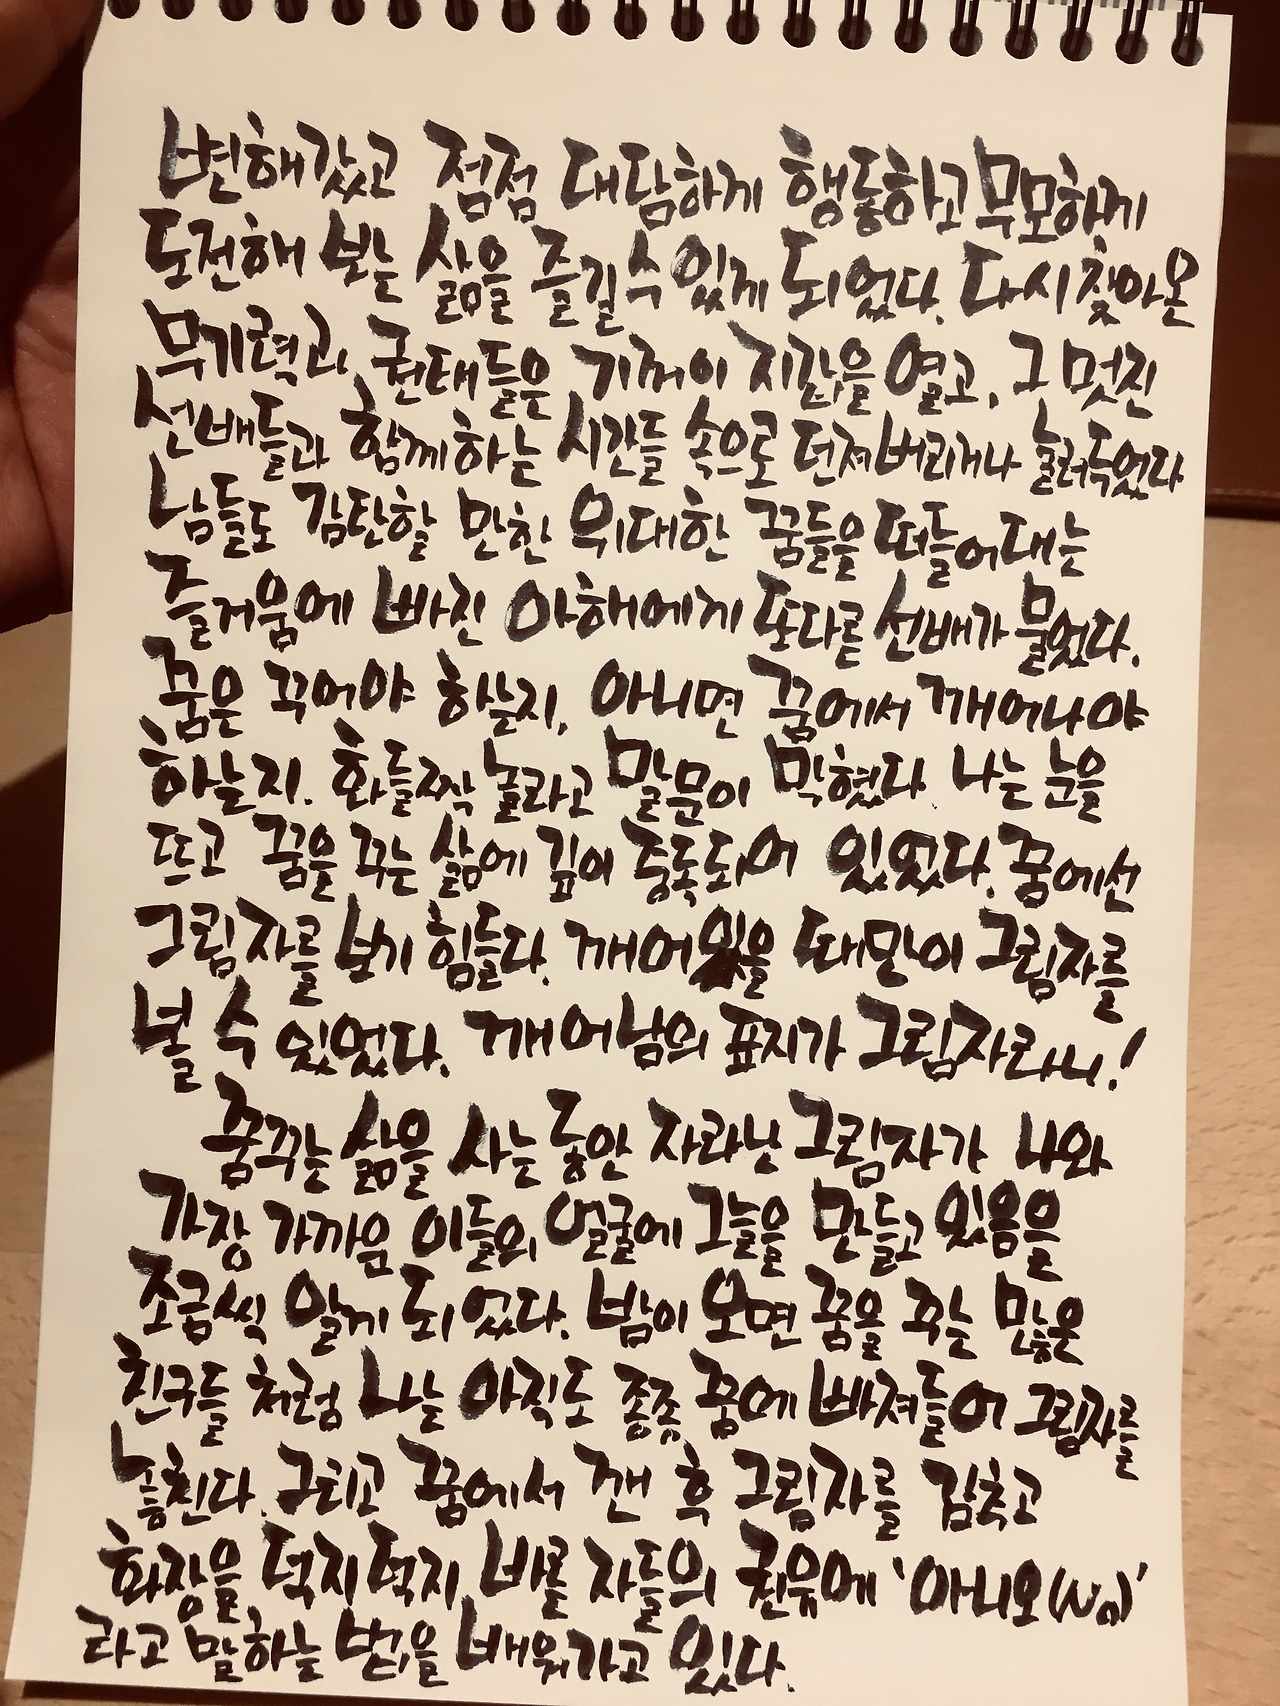 변해갔고 점점 대담하게 행동하고 무모하게
도전해 보는 삶을 즐길 수 있게 되었다. 다시 찾아온
무기력과, 권태들은 기꺼이 지갑을 열고, 그 멋진
선배들과 함께하는 시간들 속으로 던져버리거나 눌러죽였다
남들도 감탄할 만한 위대한 꿈들을 떠들어대는
즐거움에 빠진 아해에게 또다른 선배가 물었다.
꿈은 꾸어야 하는지, 아니면 꿈에서 깨어나야
하는지. 화들짝 놀라고 말문이 막혔다. 나는 눈을
뜨고 꿈을 꾸는 삶에 깊이 중독되어 있었다. 꿈에선
그림자를 보기 힘들다. 깨어있을 때만이 그림자를
볼 수 있었다. 깨어남의 표지가 그림자라니!
꿈꾸는 삶을 사는 동안 자라난 그림자가 나와
가장 가까운 이들의 얼굴에 그늘을 만들고 있음을
조금씩 알게 되었다. 밤이 오면 꿈을 꾸는 많은
친구들 처럼 나는 아직도 종종 꿈에 빠져들어 그림자를
놓친다. 그리고 꿈에서 깬 후 그림자를 감추고
화장을 덕지덕지 바른 자들의 권유에 '아니오(No)'
라고 말하는 법을 배워가고 있다.